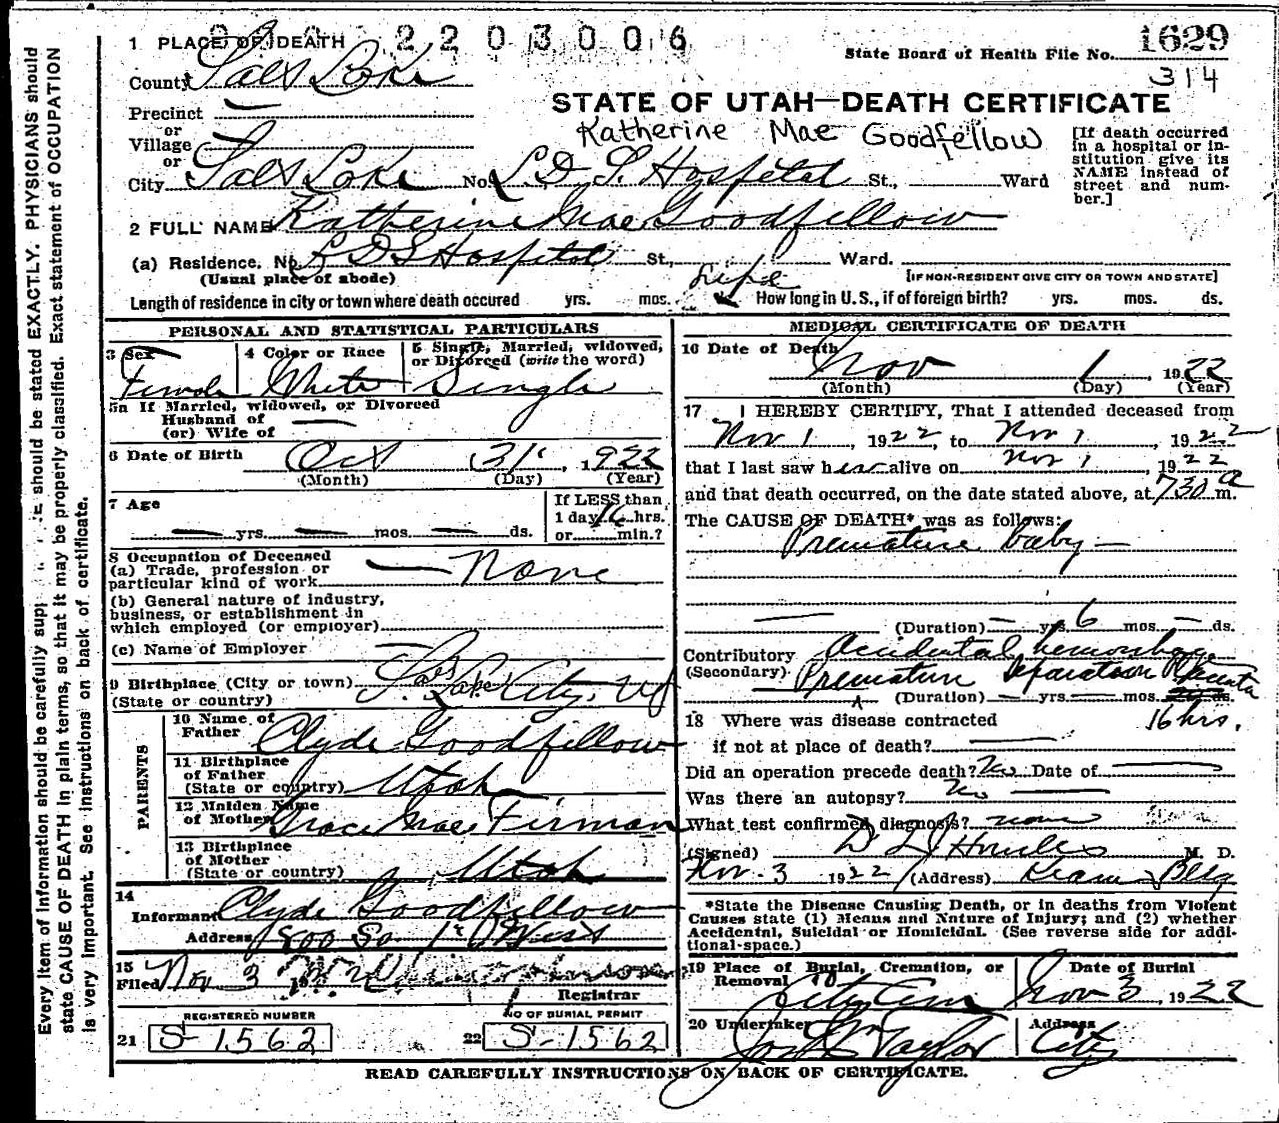 2203006
1629
1 PLACE OF DEATH
State Board of Health File No.
314
County Salt Lake
STATE OF UTAH—DEATH CERTIFICATE
Precinct
or
Village
or
Katherine Mae Goodfellow
[If death occurred in a hospital or institution give its NAME instead of street and number.]
City Salt Lake No. L.D.S. Hospital St., Ward
2 FULL NAME Katherine Mae Goodfellow
(a) Residence. No. L D S Hospital St., Ward.
(Usual place of abode) [IF NON-RESIDENT GIVE CITY OR TOWN AND STATE]
Length of residence in city or town where death occured yrs. mos. Life How long in U. S., if of foreign birth? yrs. mos. ds.
PERSONAL AND STATISTICAL PARTICULARS
3 Sex Female
4 Color or Race White
5 Single, Married, widowed, or Divorced (write the word) Single
5a If Married, widowed, or Divorced
Husband of
(or) Wife of
6 Date of Birth Oct 31, 1922
(Month) (Day) (Year)
7 Age yrs. mos. ds.
If LESS than
1 day 16 hrs.
or min.?
8 Occupation of Deceased
(a) Trade, profession or
particular kind of work None
(b) General nature of industry,
business, or establishment in
which employed (or employer)
(c) Name of Employer
9 Birthplace (City or town) Salt Lake City, Ut
(State or country)
PARENTS
10 Name of
Father Clyde Goodfellow
11 Birthplace
of Father
(State or country) Utah
12 Maiden Name
of Mother Grace Mae Firman
13 Birthplace
of Mother
(State or country) Utah
14
Informant Clyde Goodfellow
Address 1800 So. 1st West
15
Filed Nov 3 19
Registrar
REGISTERED NUMBER
21 S-1562
NO OF BURIAL PERMIT
22 S-1562
MEDICAL CERTIFICATE OF DEATH
16 Date of Death Nov 1, 1922
(Month) (Day) (Year)
17 I HEREBY CERTIFY, That I attended deceased from
Nov 1, 1922, to Nov 1, 1922
that I last saw her alive on Nov 1, 1922
and that death occurred, on the date stated above, at 730 a m.
The CAUSE OF DEATH* was as follows:
Premature baby —
(Duration) yrs 6 mos. ds.
Contributory Accidental hemorrhage
(Secondary) Premature Separation Placenta
(Duration) yrs. mos. ds.
16 hrs.
18 Where was disease contracted
if not at place of death?
Did an operation precede death? No Date of
Was there an autopsy? No
What test confirmed diagnosis? none
(Signed) M. D.
Nov. 3 1922 (Address) Kearns Bldg
*State the Disease Causing Death, or in deaths from Violent
Causes state (1) Means and Nature of Injury; and (2) whether
Accidental, Suicidal or Homicidal. (See reverse side for addi-
tional space.)
19 Place of Burial, Cremation, or
Removal City Cem
Date of Burial
Nov 3, 1922
20 Undertaker Taylor
Address
City
READ CAREFULLY INSTRUCTIONS ON BACK OF CERTIFICATE.
Every item of information should be carefully should be stated EXACTLY. PHYSICIANS should
state CAUSE OF DEATH in plain terms, so that it may be properly classified. Exact statement of OCCUPATION
is very important. See instructions on back of certificate.